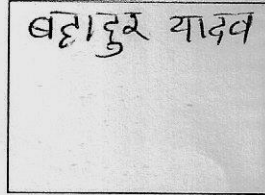 बहादुर यादव